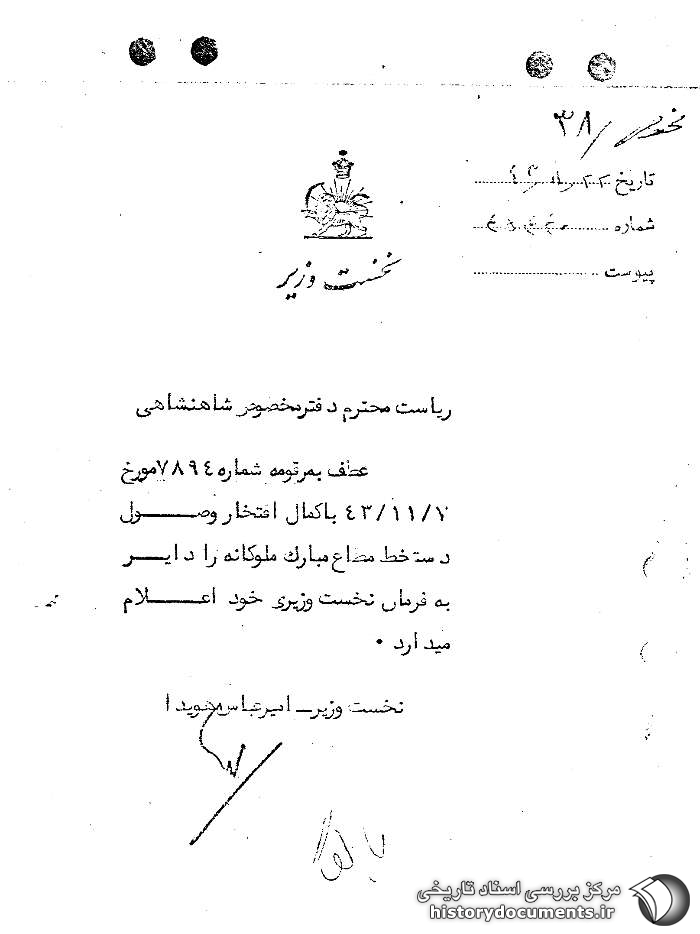 ۳۸/
تاریخ
شماره
پیوست
نخست وزیر
ریاست محترم دفتر مخصوص شاهنشاهی
عطف بمرقومه شماره ۷۸۹٤ مورخ
٤۳/۱۱/۷ باکمال افتخار وصول
دستخط مطاع مبارك ملوکانه را دایر
به فرمان نخست وزیری خود اعلام
میدارد •
نخست وزیر ـ امیرعباس هویدا
مرکز بررسی اسناد تاریخی
historydocuments.ir